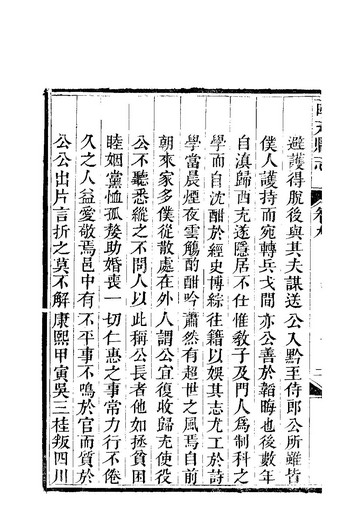 西充縣志
卷九
避護得脫後與其夫謀送公入黔至侍郎公所雖皆
僕人護持而宛轉兵戈間亦公善於韜晦也後數年
自滇歸西充遂隱居不仕惟敎子及門人爲制科之
學而自沈酣於經史博綜往籍以娛其志尤工於詩
學當晨煙夜雲觴酌酣吟蕭然有超世之風焉自前
朝來家多僕從散處在外人謂公宜復收歸充使役
公不聽悉縱之不問人以此稱公長者他如拯貧困
睦姻黨恤孤嫠助婚喪一切仁惠之事常力行不倦
久之人益愛敬焉邑中有不平事不鳴於官而質於
公公出片言折之莫不解康熙甲寅吳三桂叛四川